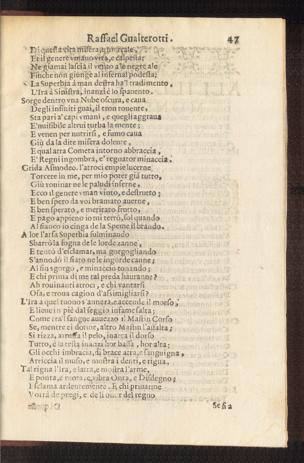 Raffael Gualterotti. 47
Di questa vita misera mortale,
Et il genere vmano vita, e calpesta;
Ne giamai lascia il vinto ale negre ale
Finche non giunge al infernal podesta;
La Superbia à man destra ha'l tradimento,
L'Ira à Sinistra, inanzi è lo spauento.
Sorge dentro vna Nube oscura, e caua
Degli infiniti guai, il tron tonente,
Sta pari a' capi vmani, e quegli aggraua
E'nuisibile altrui turba la mente;
E venen per nutrirsi, e fumo caua
Giù da la dite misera dolente,
E qual atra Cometa intorno abbraccia,
E' Regni ingombra, e' regnator minaccia.
Grida Asmodeo. l'atroci empie lucerne
Torcete in me, per mio poter già tutto,
Giù rouinar ne le paludi inferne,
Ecco il genere vman vinto, e destrutto;
E ben spero da voi bramato auerne,
E ben sperato, e meritato frutto,
E pago appieno io mi terrò, sol quando
Al fianco io cinga de la Speme il brando.
A lor l'arsa Superbia fulminando
Sbarrò la fogna de le lorde zanne,
E tentò d'esclamar, ma gorgogliando
S'annodò il fiato ne le ingorde canne;
Al fin sgorgo, e minaccio tonando
E chi prima di me tal preda hauranne?
Ah rouinanti atroci, e chi vantarsi
Osa, e troua cagion d'assimigliarsi?
L'Ira a quei tuoni s'annera, e accende il morso,
E lieue in piè dal seggio infame salta,
Come tra'l sangue auuezzo il Mastin Corso
Se, mentre ei dorme, altro Mastin l'assalta;
Si rizza, arruffa il pelo, inarca il dorso
Tutto, e la testa inarca hor bassa, hor alta;
Gli occhi imbracia, di brace atra, e sanguigna,
Arriccia il muso, e mostra i denti, e rigna,
Tal rigna l'Ira, e latra, e mostra l'arme,
E ponta, e morte, e vibra Onta, e Disdegno;
Esclama ardentemente. E chi priuarme
Vorrà de pregi, e de li onor del regno